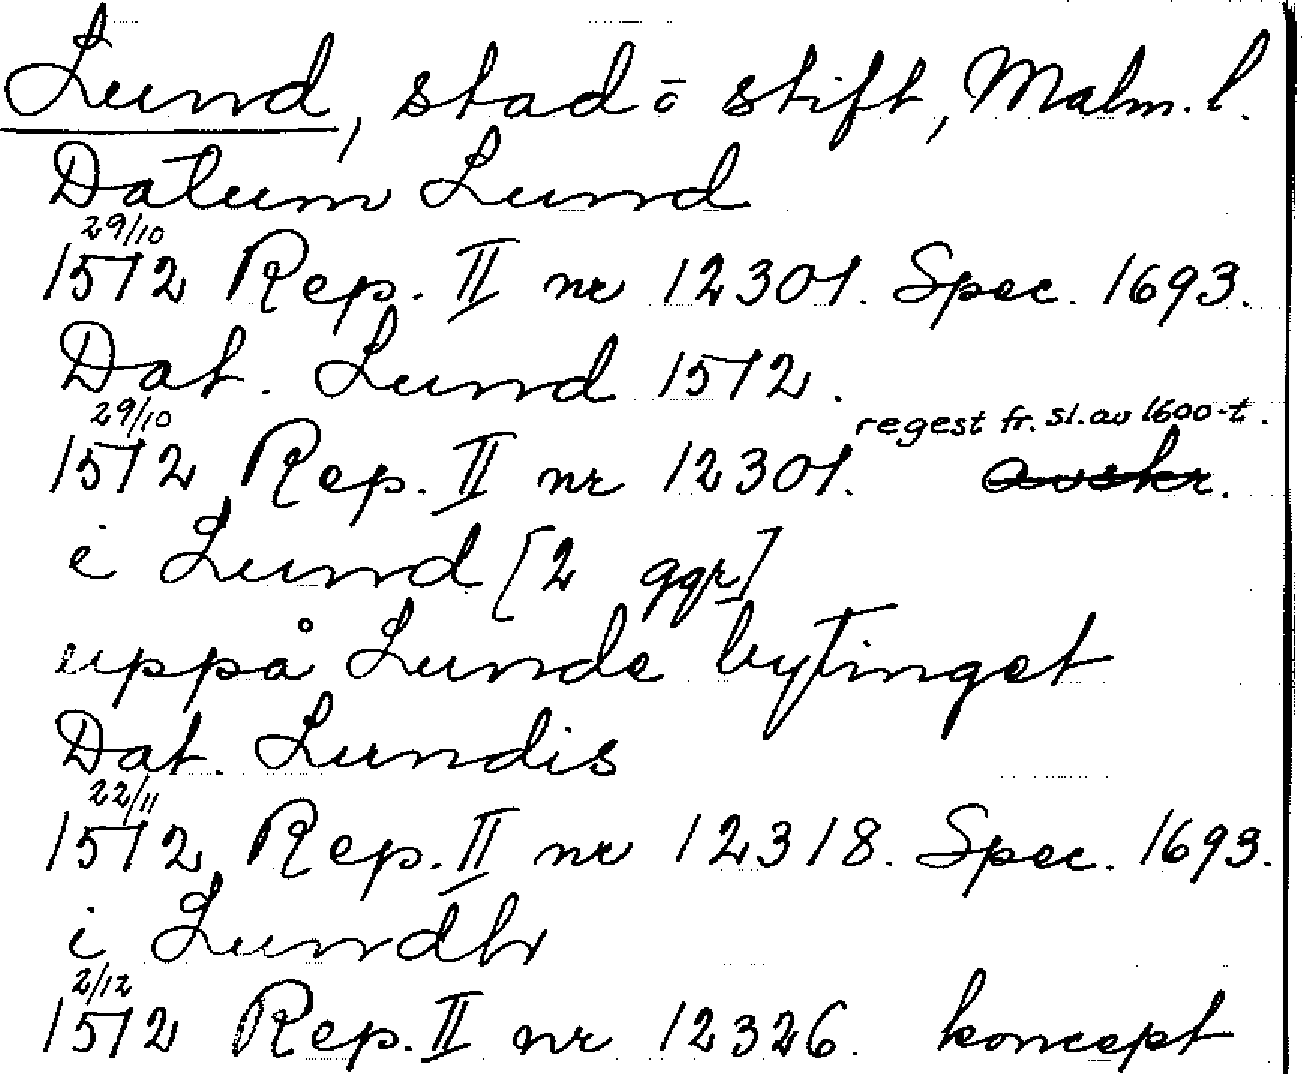 Lund, stad ō stift, Malm. l.
Datum Lund
29/10
1572 Rep. II nr 12301. Spec. 1693.
Dat. Lund 1572.
29/10 regest fr. sl. av 1600-t.
1572 Rep. II nr 12301. avskr.
i Lund [2 ggr]
uppå Lunde bytinget
Dat. Lundis
22/11
1572 Rep. II nr 12318. Spec. 1693.
i Lundh
2/12
1572 Rep. II nr 12326. koncept